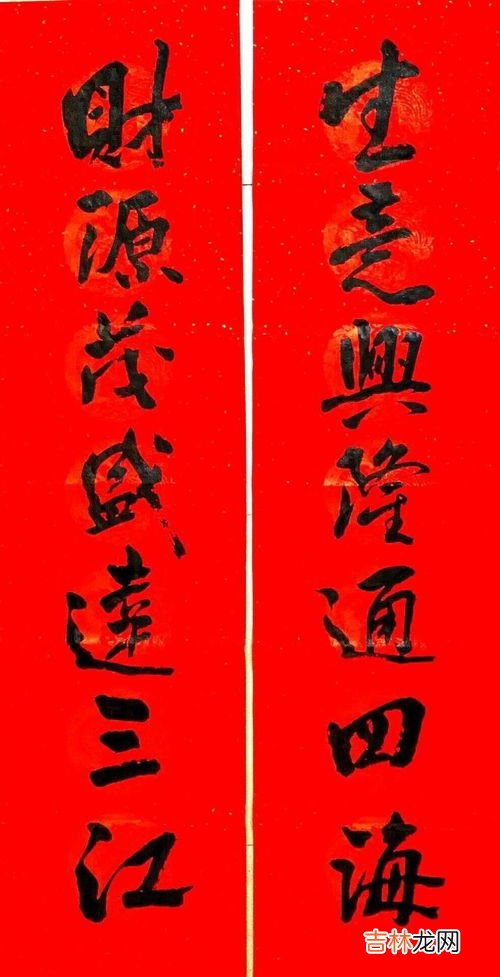 生意興隆通四海
財源茂盛達三江
吉林龙网